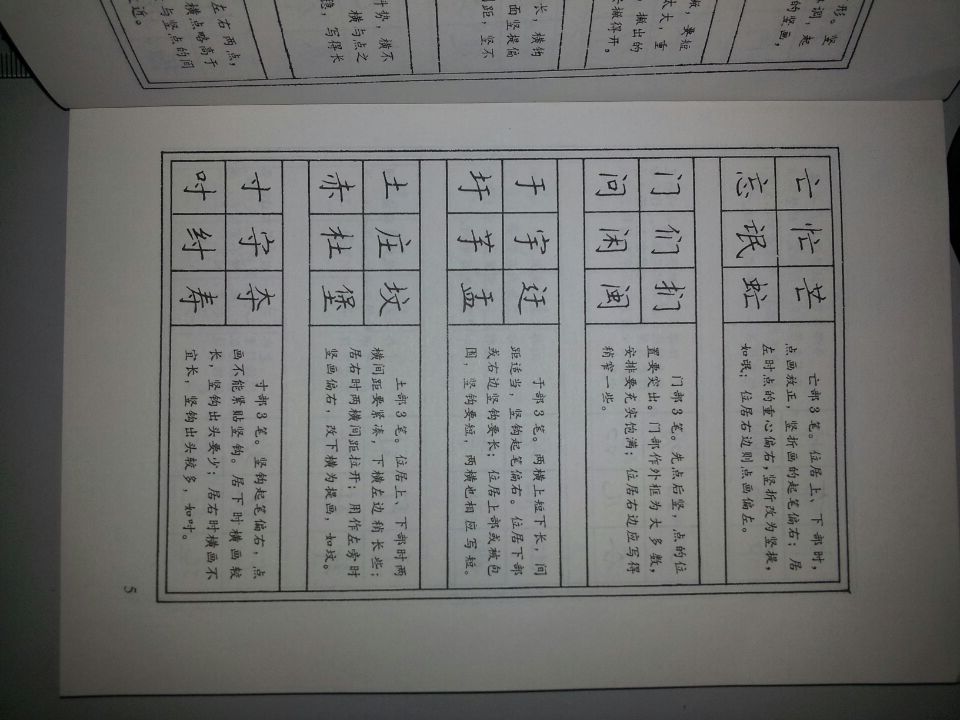 形。竖
，起
的竖画，
，要短
，撇出的
太大，重
撇得开。
长，横钩
面竖提偏
间距，竖不
势，横不
横与点之
稳，写得长
左右两点，
横点略高于
与竖点的间
近。
亡 忙 芒
忘 氓 虻
亡部3笔。位居上、下部时，
点画放正，竖折画的起笔偏右；居
左时点的重心偏右，竖折改为竖提，
如氓；位居右边则点画偏左。
门 们 扪
问 闲 闽
门部3笔。先点后竖，点的位
置要突出。门部作外框为大多数，
安排要充实饱满；位居右边应写得
稍窄一些。
于 宇 迂
圩 芋 盂
于部3笔。两横上短下长，间
距适当，竖钩起笔偏右。位居下部
或右边竖钩要长；位居上部或被包
围，竖钩要短，两横也相应写短。
土 庄 坟
赤 杜 堡
土部3笔。位居上、下部时两
横间距要紧凑，下横左边稍长些；
居右时两横间距拉开；用作左旁时
竖画偏右，改下横为提画，如坟。
寸 守 夺
吋 纣 寿
寸部3笔。竖钩起笔偏右，点
画不能紧贴竖钩。居下时横画较
长，竖钩出头要少；居右时横画不
宜长，竖钩出头较多，如吋。
5